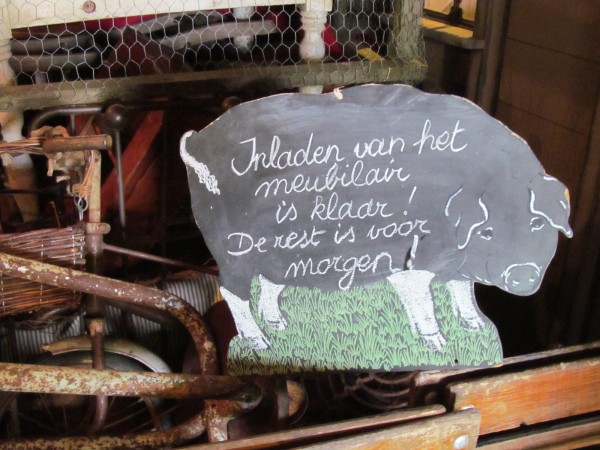 Inladen van het
meubilair
is klaar!
De rest is voor
morgen!